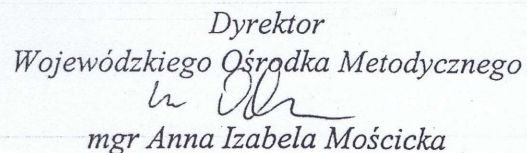 Dyrektor
Wojewódzkiego Ośrodka Metodycznego
mgr Anna Izabela Mościcka